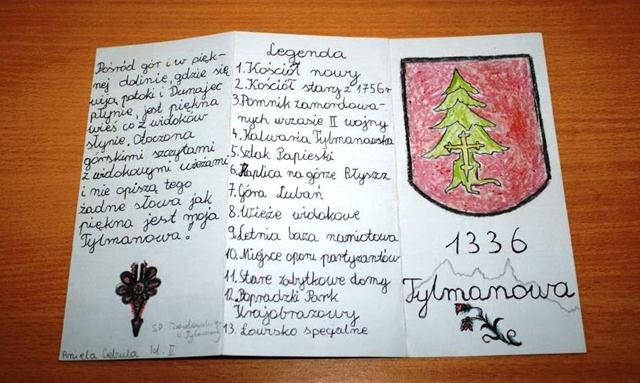 Pośród gór i w pięk-
nej dolinie, gdzie się
wija potoki i Dunajec
płynie, jest piękna
wieś co z widoków
słynie. Otoczona
górskimi szczytami
z widokowymi wieżami
i nie opiszą tego
żadne słowa jak
piękna jest moja
Tylmanowa.
SP
Aniela Cebula kl. II
Legenda
1. Kościół nowy
2. Kościół stary z 1756r
3. Pomnik zamordowa-
nych wczasie II wojny
4. Kalwaria Tylmanowska
5. Szlak Papieski
6. Kaplica na górze Błyszcz
7. Góra Lubań
8. Wieże widokowe
9. Letnia baza namiotowa
10. Miejsce oporu partyzantów
11. Stare zabytkowe domy
12. Popradzki Park
Krajobrazowy
13. Łowisko specjalne
1336
Tylmanowa